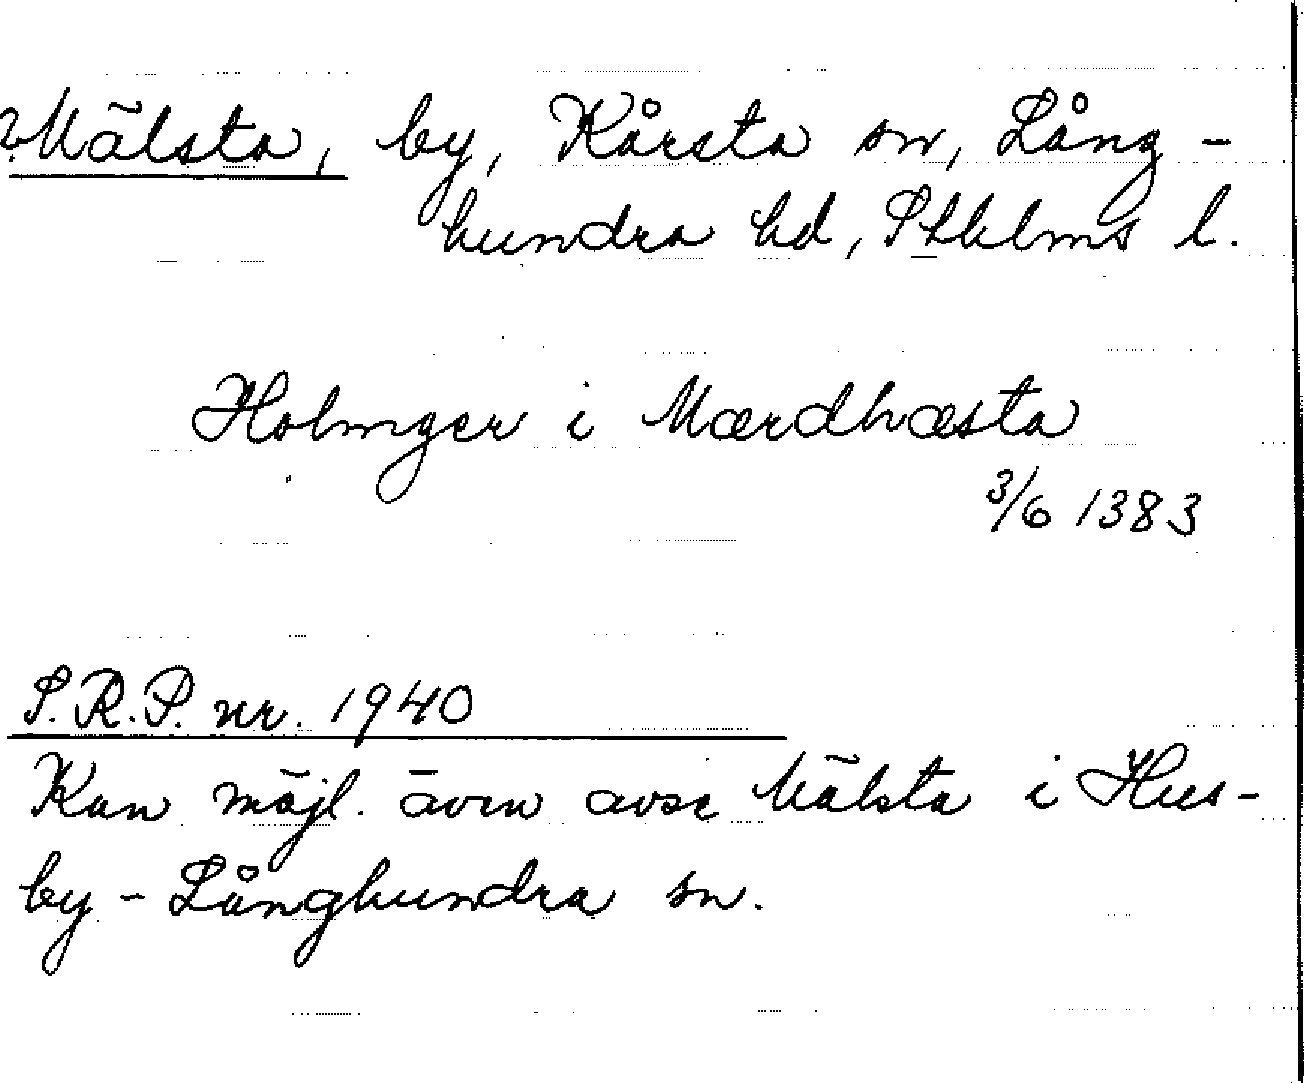 ? Mälsta, by, Kårsta sn, Lång-
hundra hd, Sthlms l.
Holmger i Mærdhæsta
3/6 1383
S.R.P. nr. 1940
Kan möjl. även avse Mälsta i Hus-
by-Långhundra sn.